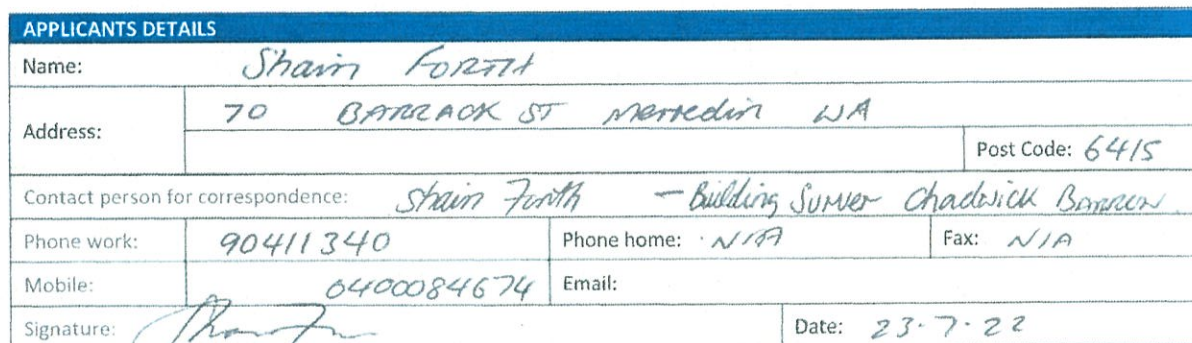 APPLICANTS DETAILS
Name: Shain FORTH
Address: 70 BARRACK ST Merredin WA
Post Code: 6415
Contact person for correspondence: Shain Forth - Building Surver Chadwick BARRON
Phone work: 90411340 Phone home: N/A Fax: N/A
Mobile: 0400084674 Email:
Signature: Date: 23.7.22